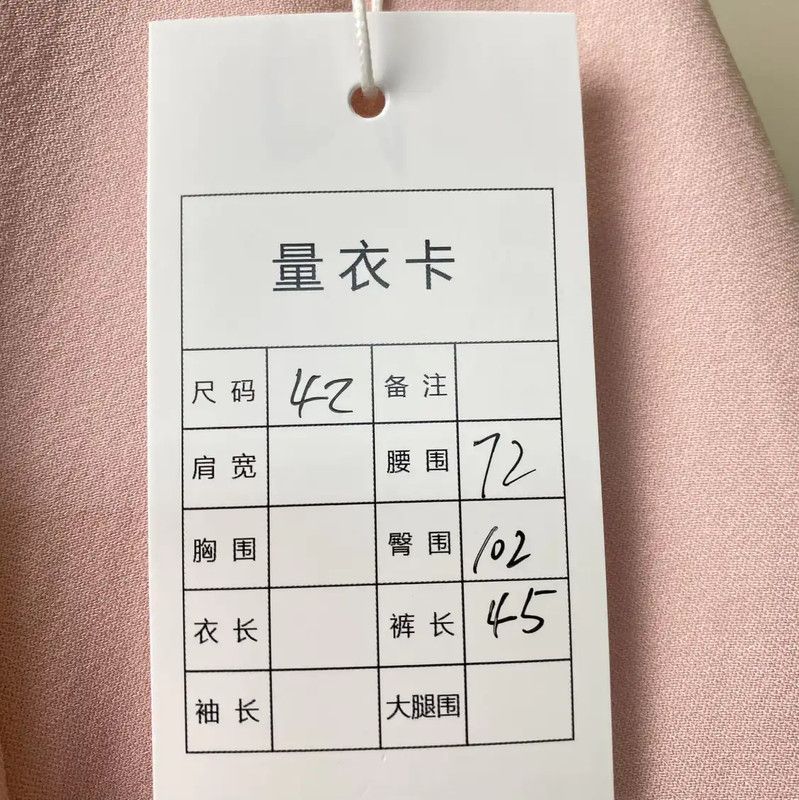 量衣卡
尺码 42 备注
肩宽 腰围 72
胸围 臀围 102
衣长 裤长 45
袖长 大腿围